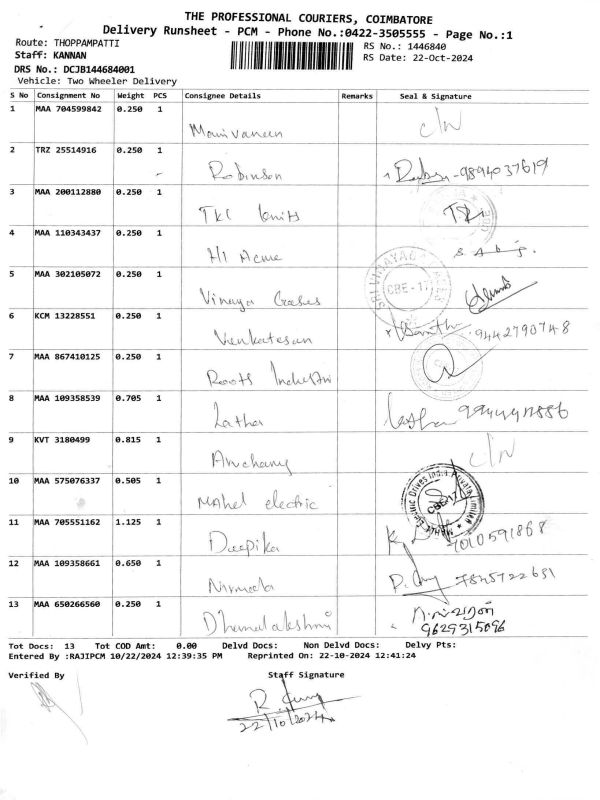 THE PROFESSIONAL COURIERS, COIMBATORE
Delivery Runsheet - PCM - Phone No.:0422-3505555 - Page No.:1
Route: THOPPAMPATTI RS No.: 1446840
Staff: KANNAN RS Date: 22-Oct-2024
DRS No.: DCJB144684001
Vehicle: Two Wheeler Delivery
S No Consignment No Weight PCS Consignee Details Remarks Seal & Signature
1 MAA 704599842 0.250 1 Manivaneen C/N
2 TRZ 25514916 0.250 1 Robinson -9894037619
3 MAA 200112880 0.250 1 TKC Units
4 MAA 110343437 0.250 1 HI Acme
5 MAA 302105072 0.250 1 Vinaya SRI VINAYAGA CBE-17
6 KCM 13228551 0.250 1 Venkatesan 9442790748
7 MAA 867410125 0.250 1 Roots Industri
8 MAA 109358539 0.705 1 Latha Latha
9 KVT 3180499 0.815 1 C/N
10 MAA 575076337 0.505 1 Mahel electric Mahle Electric Drives India Private Limited CBE-17
11 MAA 705551162 1.125 1 Deepika 7010591868
12 MAA 109358661 0.650 1 Nirmala 7845722651
13 MAA 650266560 0.250 1 Dhanalakshmi
9629315096
Tot Docs: 13 Tot COD Amt: 0.00 Delvd Docs: Non Delvd Docs: Delvy Pts:
Entered By :RAJIPCM 10/22/2024 12:39:35 PM Reprinted On: 22-10-2024 12:41:24
Verified By Staff Signature
22/10/2024